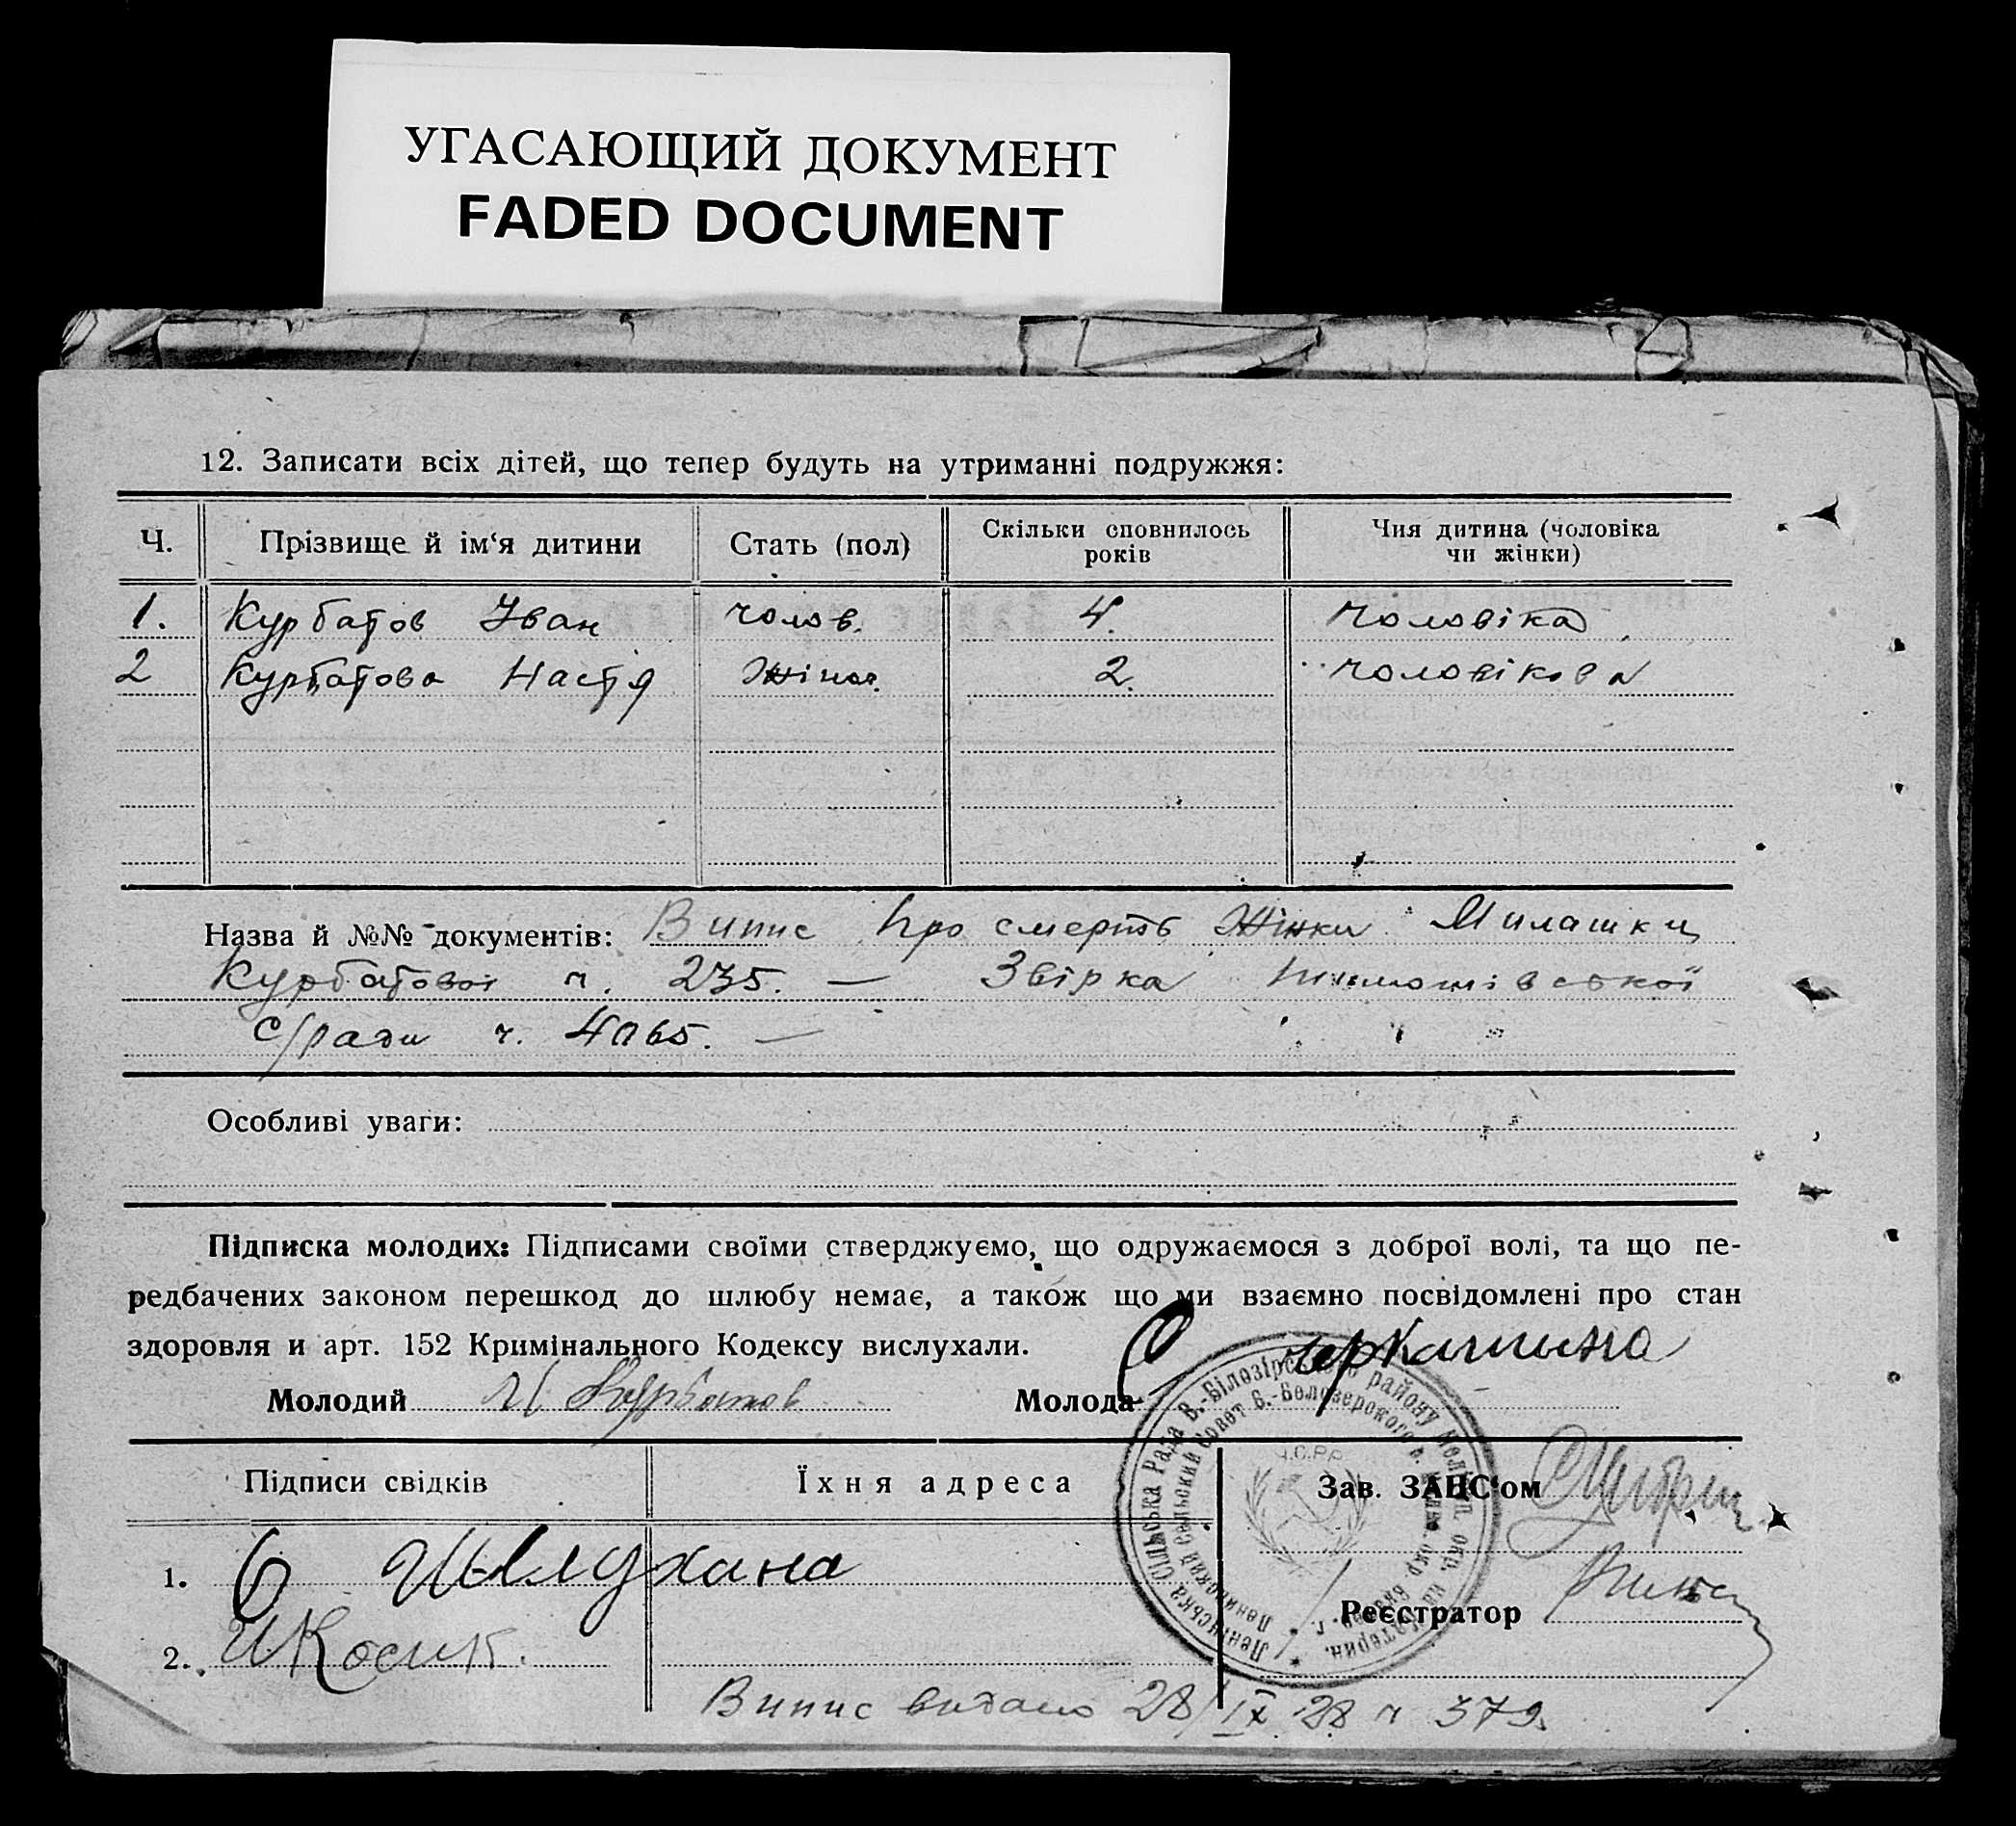 УГАСАЮЩИЙ ДОКУМЕНТ
FADED DOCUMENT
12. Записати всіх дітей, що тепер будуть на утриманні подружжя:
Ч. Прізвище й ім‘я дитини Стать (пол) Скільки сповнилось років Чия дитина (чоловіка чи жінки)
1. Курбатов Іван чолов. 4. Чоловіка
2 Курбатова Настя Жіноч. 2. чоловікова
Назва й №№ документів: Випис про смерть Жінки Милашки
Курбатової ч. 235. — Звірка
с/ради ч. 4065. —
Особливі уваги:
Підписка молодих: Підписами своїми стверджуємо, що одружаємося з доброї волі, та що пе-
редбачених законом перешкод до шлюбу немає, а також що ми взаємно посвідомлені про стан
здоровля и арт. 152 Кримінального Кодексу вислухали.
Молодий И Курбатов Молода Черкашина
Підписи свідків Їхня адреса Зав. ЗАПС‘ом
1. Шелухана
Реєстратор
2. И Косик.
Випис видано 28/IX 28 ч 379.
Ленінська Сільська Рада В.-Білозірського району Меліт. окр. на Катерин.
Ленинский Сельский Совет В.-Белозерского
У.С.Р.Р.